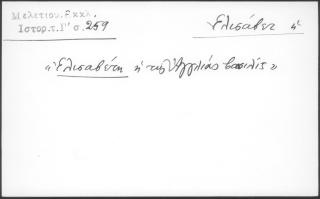 Μελετίου.Εκκλ.
Ἱστορ.τ.Γ' σ. 259
Ἐλισάβετ ἡ
« Ἐλισαβέτη ἡ τῆς Ἀγγλίας βασιλὶς »